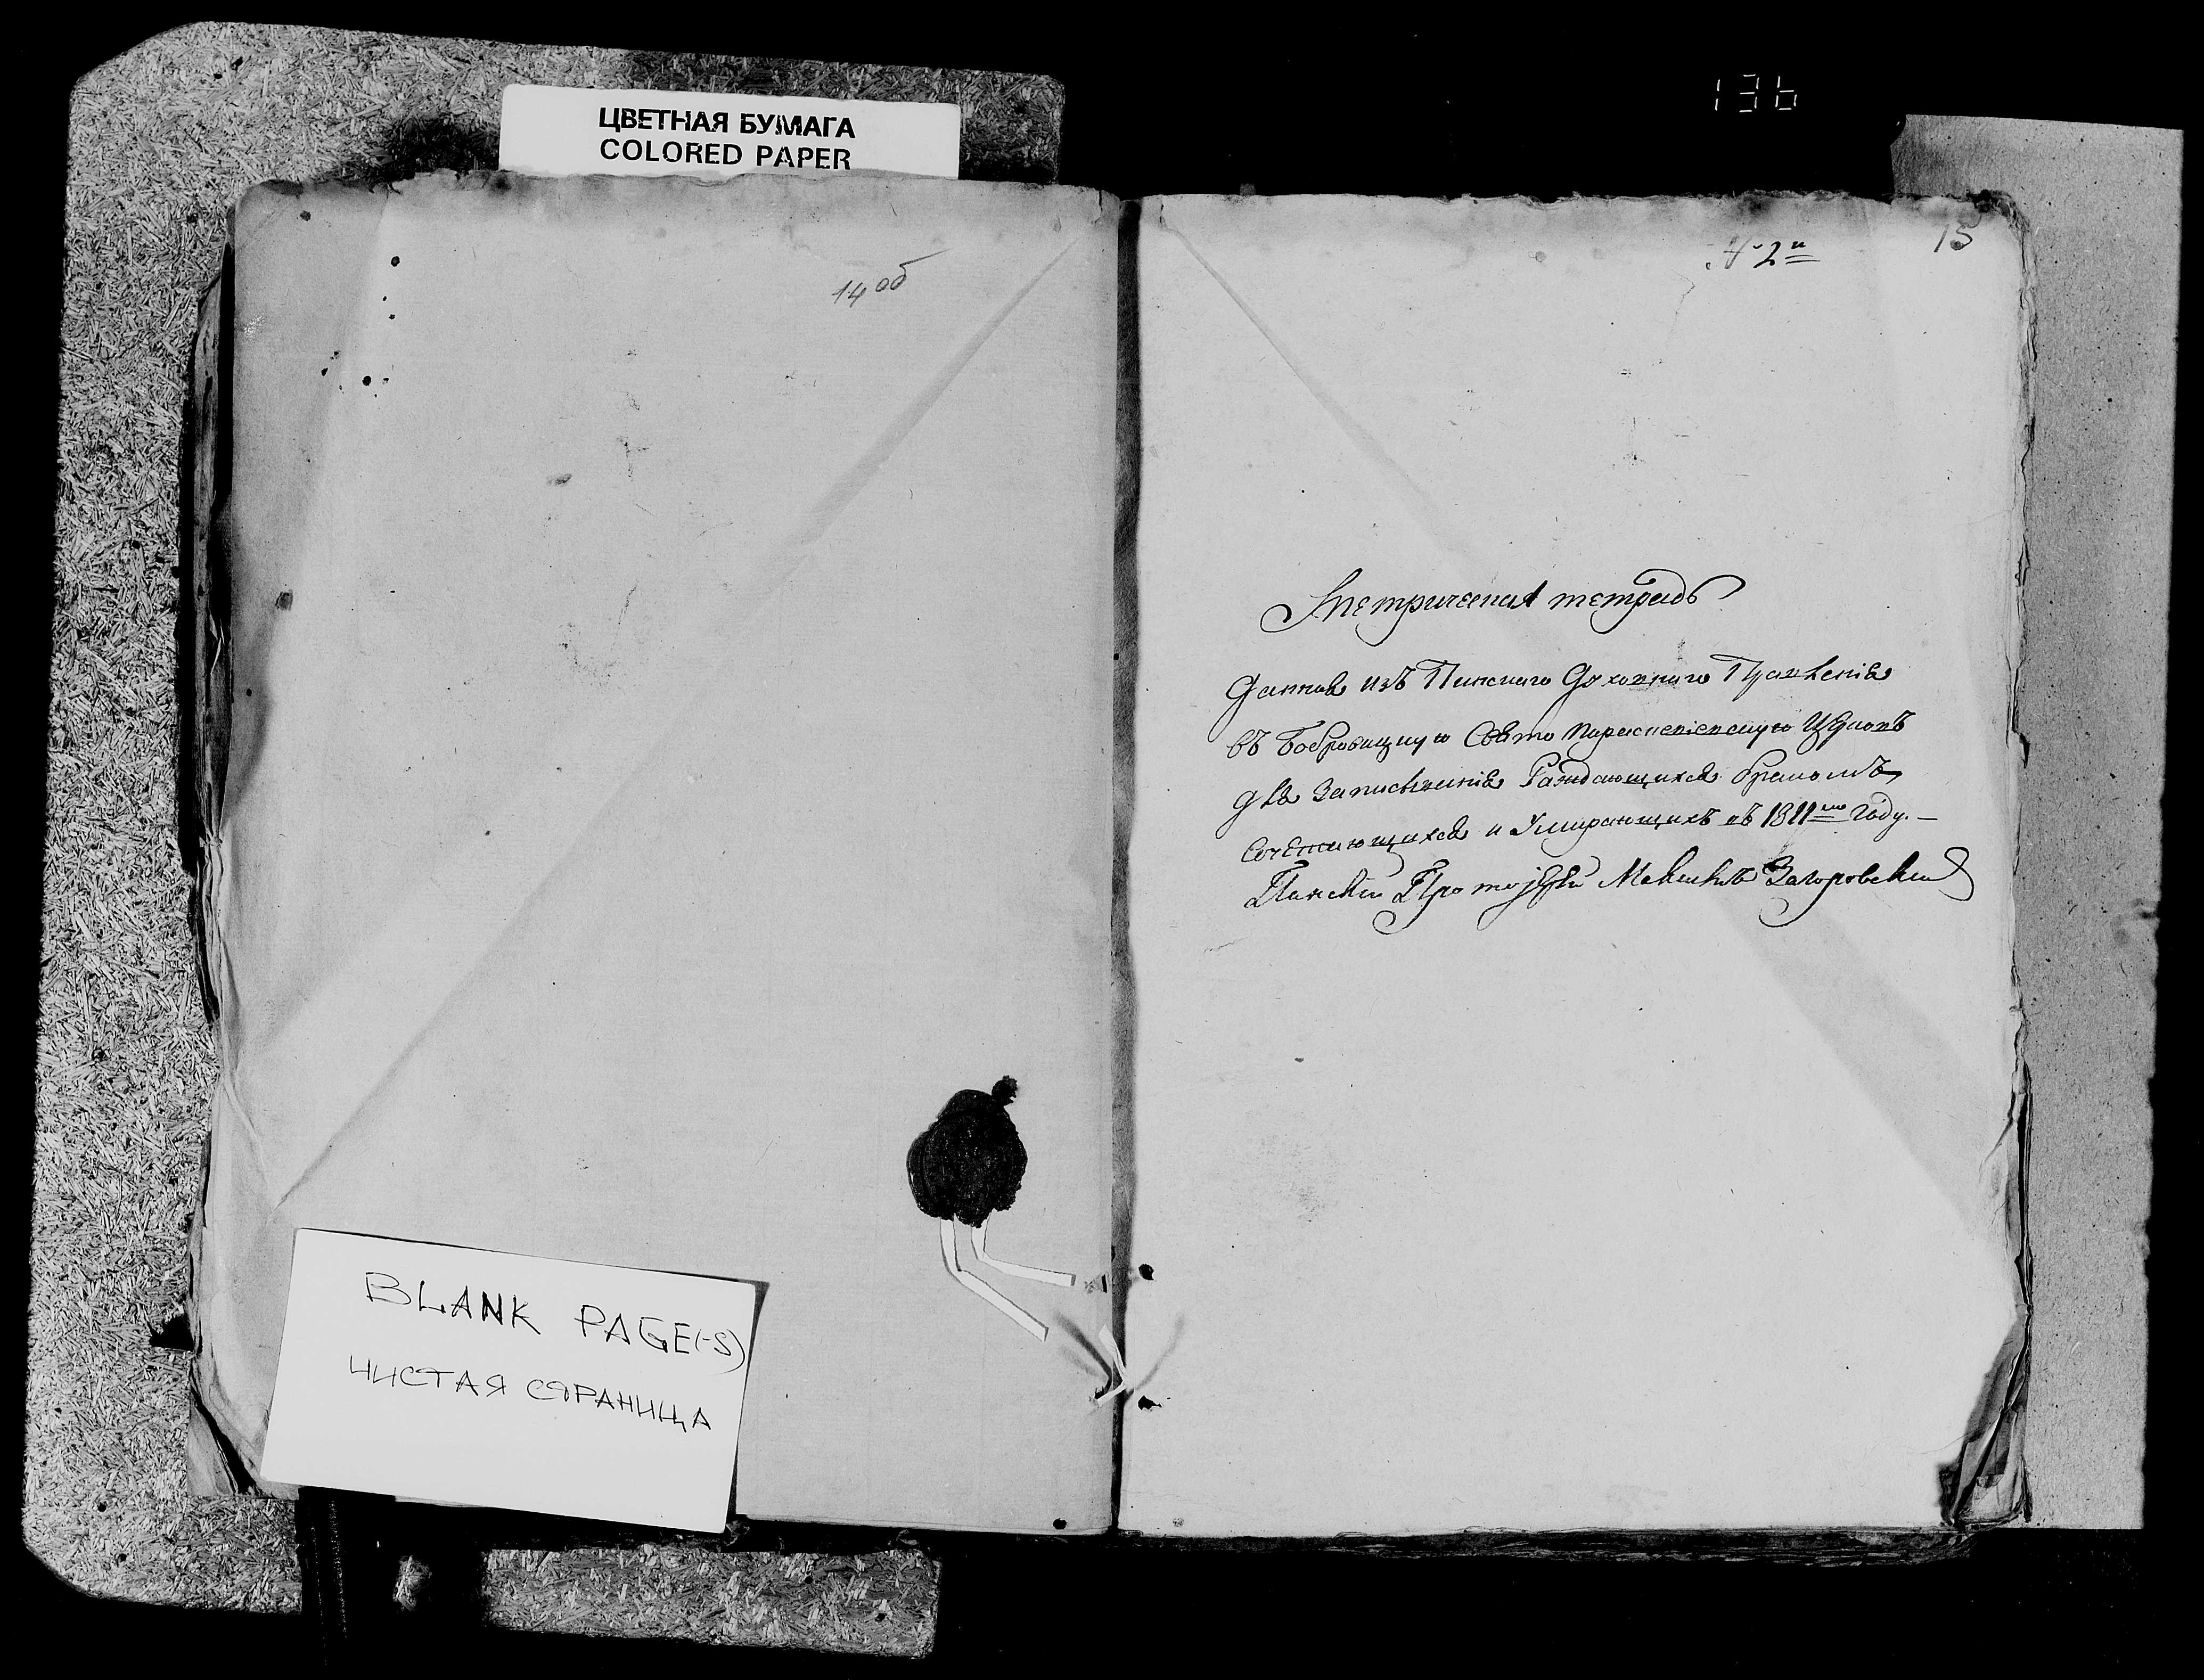 136
ЦВЕТНАЯ БУМАГА
COLORED PAPER
14 об
BLANK PAGE(-S)
ЧИСТАЯ СТРАНИЦА
15
№ 2й
Метрическая тетрадь
данная изъ Пинскаго Духовнаго Правленія
въ Бобровицкую Свято Параскевіевскую Церковь
для записыванія Раждающихся бракомъ
Сочетающихся и Умирающихъ въ 1811мъ году. —
Пинскій Протоіерей Загоровскій